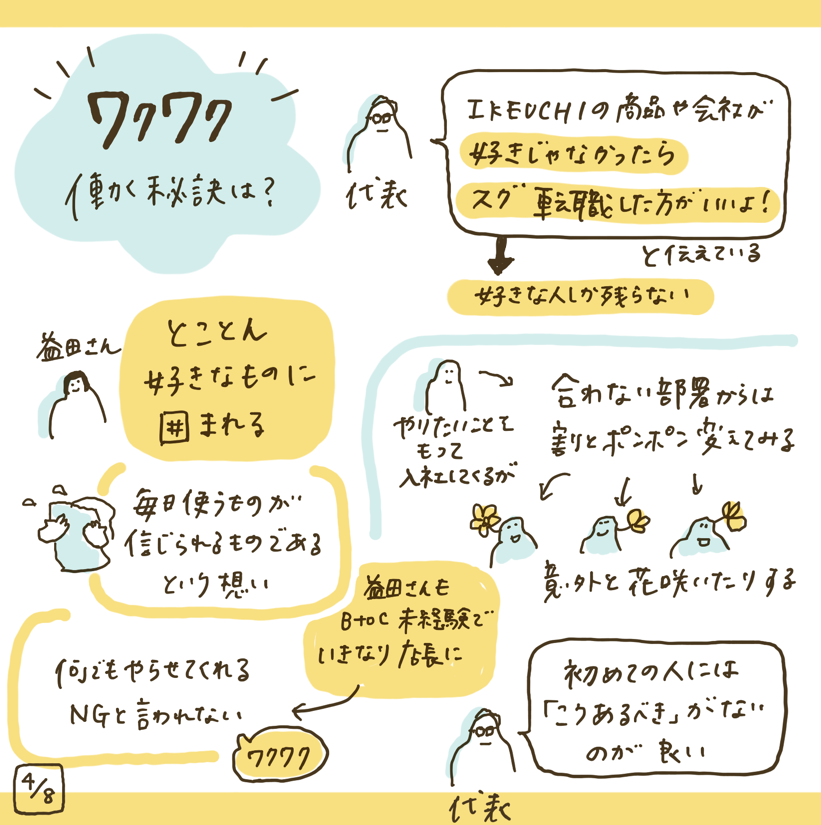 ワクワク
働く秘訣は?
代表
IKEUCHIの商品や会社が
好きじゃなかったら
スグ転職した方がいいよ!
と伝えている
好きな人しか残らない
益田さん
とことん
好きなものに
囲まれる
毎日使うものが
信じられるものである
という想い
やりたいことを
もって
入社してくるが
合わない部署からは
割とポンポン変えてみる
意外と花咲いたりする
益田さんも
BtoC未経験で
いきなり店長に
何でもやらせてくれる
NGと言われない
ワクワク
初めての人には
「こうあるべき」がない
のが良い
代表
4/8